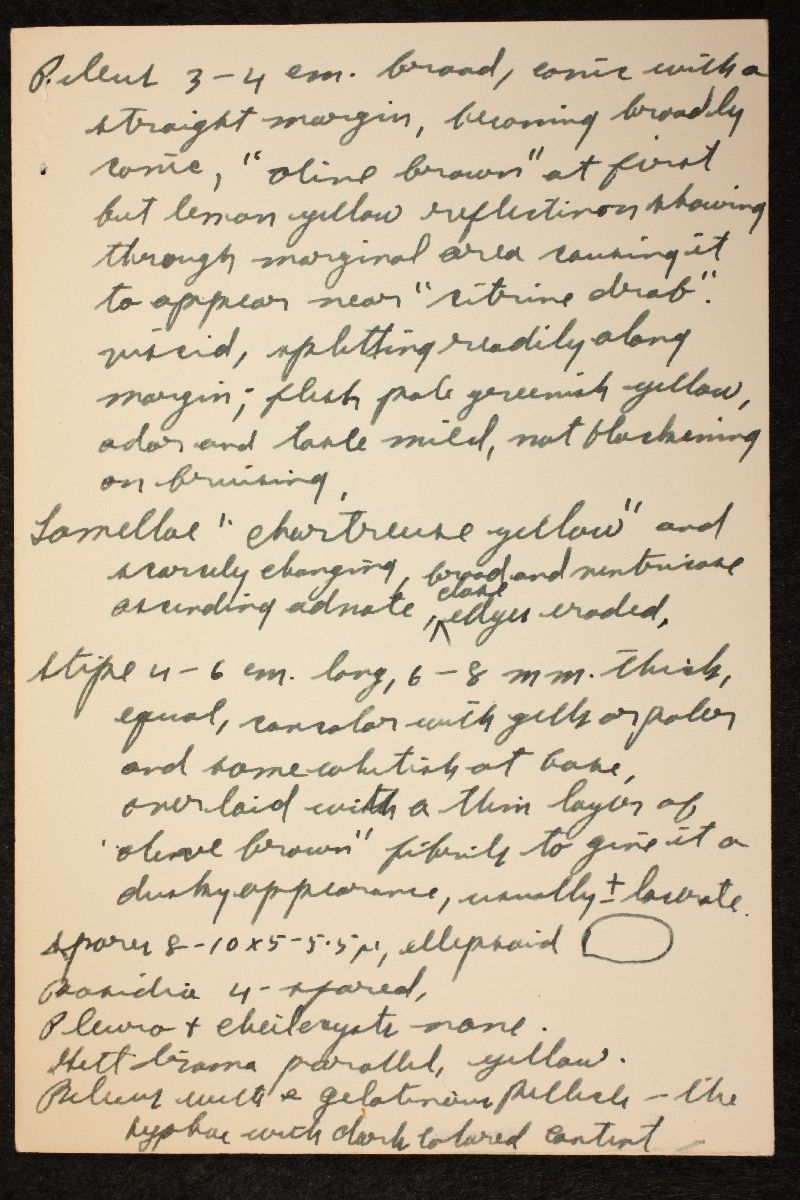 Pileus 3-4 cm. broad, conic with a
straight margin, becoming broadly
conic, "olive brown" at first
but lemon yellow reflection showing
through marginal area causing it
to appear near "citrine drab".
viscid, splitting readily along
margin; flesh pale greenish yellow,
odor and taste mild, not blackening
on bruising,
Lamellae "chartreuse yellow" and
scarcely changing, broad and ventricose
close
ascending adnate, edges eroded,
Stipe 4-6 cm. long, 6-8 mm. thick,
equal, concolor with gills or paler
and some whitish at base,
overlaid with a thin layer of
"olive brown" fibrils to give it a
dusky appearance, usually ± lacerate.
Spores 8-10 x 5-5.5 µ, ellipsoid
Basidia 4-spored,
Pleuro + cheilocysts none.
Gill trama parallel, yellow.
Pileus with a gelatinous pellicle - the
hyphae with dark colored content